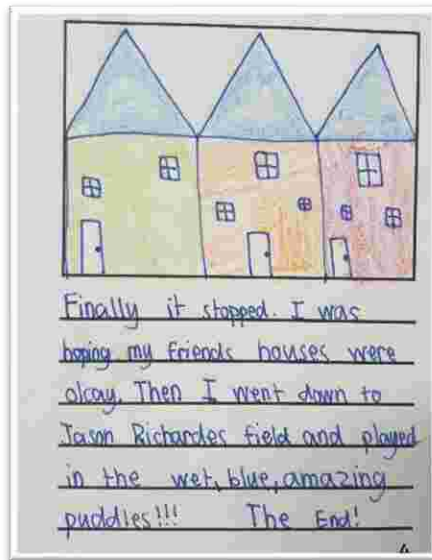 Finally it stopped. I was
hoping my friends houses were
okay. Then I went down to
Jason Richardes field and played
in the wet, blue, amazing
puddles!!! The End!
4